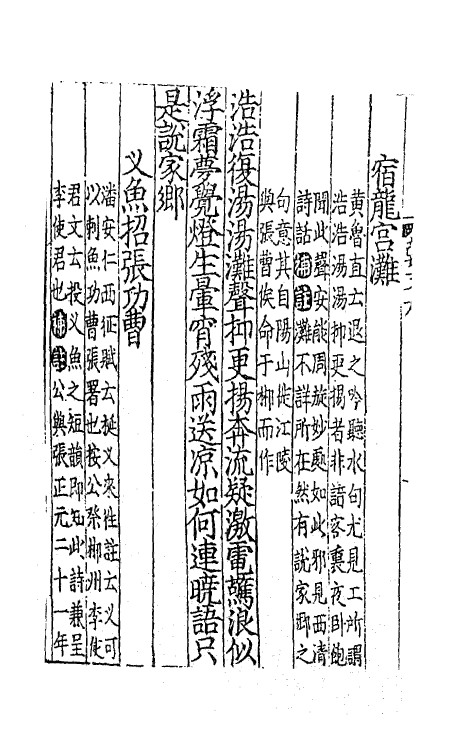 宿龍宮灘
黄魯直云退之吟聽水句尤見工所謂
浩浩湯湯抑更揚者非諳客裏夜卧飽
聞此聲安能周旋妙處如此邪見西清
詩話補註灘不詳所在然有說家鄉之
句意其自陽山徙江陵
與張曹俟命于郴而作
浩浩復湯湯灘聲抑更揚奔流疑激電驚浪似
浮霜夢覺燈生暈宵殘雨送凉如何連曉語只
是說家鄉
义魚招張功曹
潘安仁西征賦云挺义來往註云义可
以刺魚功曹張署也按公祭郴州李使
君文云投义魚之短韻即知此詩兼呈
李使君也補註公與張正元二十一年